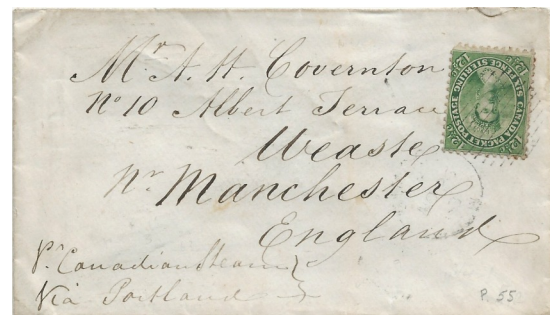 Mr A. H. Covernton
No 10 Albert Terrace
Weaste
Nr Manchester
England
P. Canadian Steam
Via Portland
CANADA PACKET POSTAGE
SIX PENCE STERLING
12½ c
P. 55